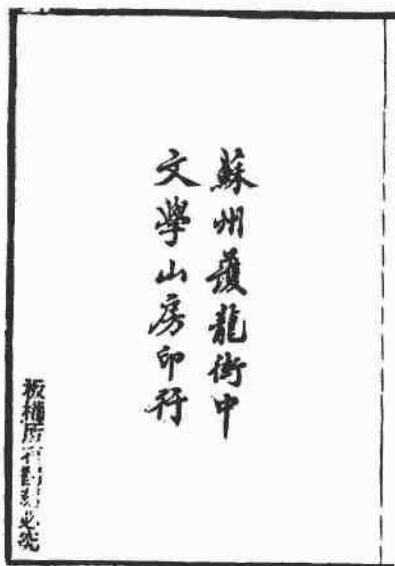 蘇州護龍街中
文學山房印行
板權所有翻刻必究